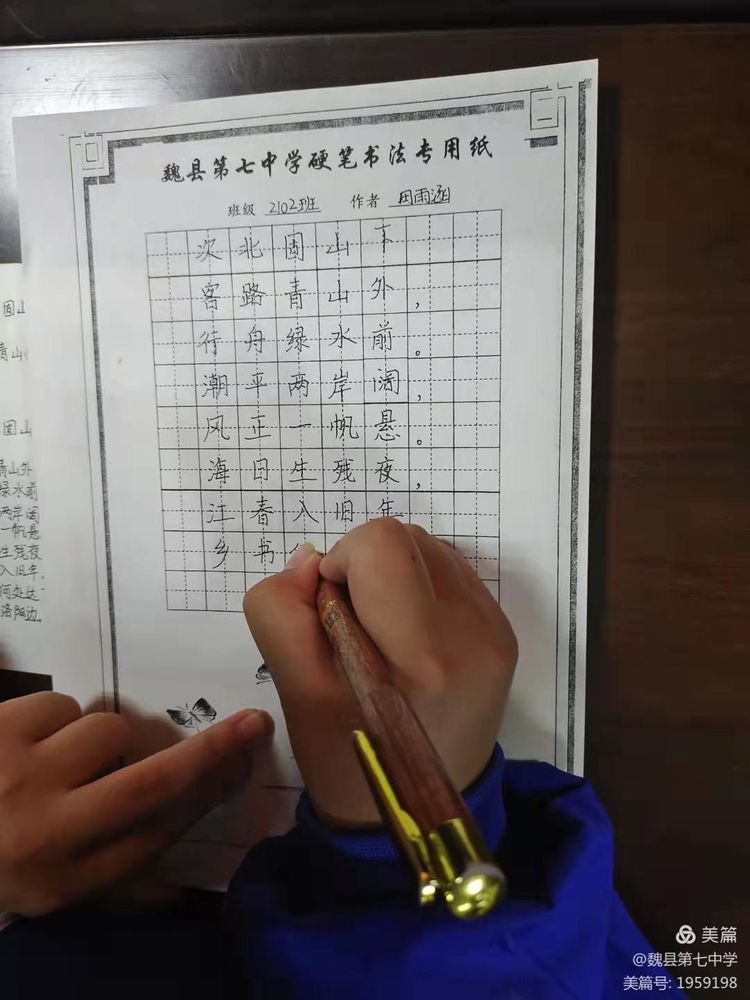 魏县第七中学硬笔书法专用纸
班级 2102班 作者 田雨涵
次北固山下
客路青山外，
行舟绿水前。
潮平两岸阔，
风正一帆悬。
海日生残夜，
江春入旧年
乡书
固山
青山
固山
青山外
绿水前
两岸阔
一帆悬
生残夜
入旧年。
何处达
洛阳边。
美篇
@魏县第七中学
美篇号: 1959198